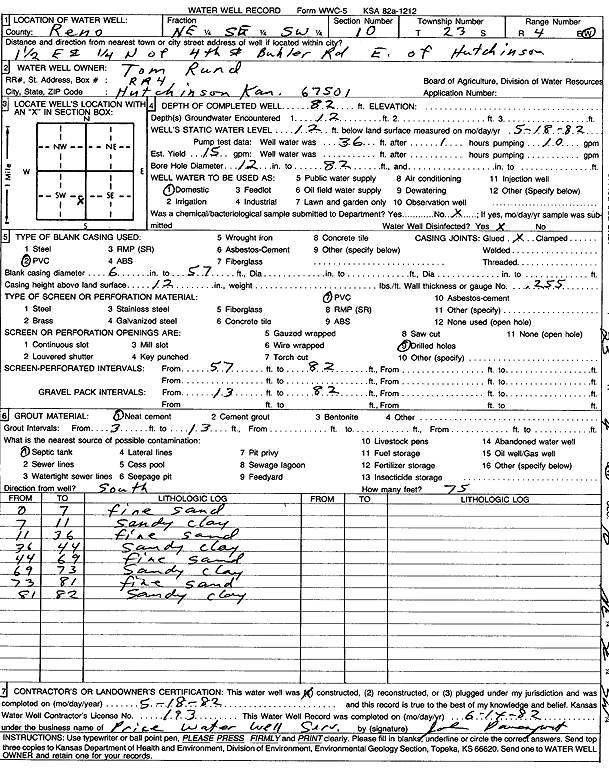 WATER WELL RECORD Form WWC-5 KSA 82a-1212
1 LOCATION OF WATER WELL: Fraction Section Number Township Number Range Number
County: Reno NE 1/4 SE 1/4 SW 1/4 10 T 23 S R 4 E/W
Distance and direction from nearest town or city street address of well if located within city?
1 1/2 E & 1/4 N of 4th St Buhler Rd E. of Hutchinson
2 WATER WELL OWNER: Tom Rund
RR#, St. Address, Box #: RR4 Board of Agriculture, Division of Water Resources
City, State, ZIP Code: Hutchinson Kan. 67501 Application Number:
3 LOCATE WELL'S LOCATION WITH AN "X" IN SECTION BOX:
N
NW NE
W E
SW X SE
S
1 Mile
4 DEPTH OF COMPLETED WELL 82 ft. ELEVATION:
Depth(s) Groundwater Encountered 1. 12 ft. 2. ft. 3. ft.
WELL'S STATIC WATER LEVEL 12 ft. below land surface measured on mo/day/yr 5-18-82
Pump test data: Well water was 36 ft. after 1 hours pumping 10 gpm
Est. Yield 15 gpm: Well water was ft. after hours pumping gpm
Bore Hole Diameter 12 in. to 82 ft., and in. to ft.
WELL WATER TO BE USED AS: 5 Public water supply 8 Air conditioning 11 Injection well
1 Domestic 3 Feedlot 6 Oil field water supply 9 Dewatering 12 Other (Specify below)
2 Irrigation 4 Industrial 7 Lawn and garden only 10 Observation well
Was a chemical/bacteriological sample submitted to Department? Yes No X; If yes, mo/day/yr sample was submitted Water Well Disinfected? Yes X No
5 TYPE OF BLANK CASING USED: 5 Wrought iron 8 Concrete tile CASING JOINTS: Glued X Clamped
1 Steel 3 RMP (SR) 6 Asbestos-Cement 9 Other (specify below) Welded
2 PVC 4 ABS 7 Fiberglass Threaded
Blank casing diameter 6 in. to 57 ft., Dia in. to ft., Dia in. to ft.
Casing height above land surface 12 in., weight lbs./ft. Wall thickness or gauge No. .255
TYPE OF SCREEN OR PERFORATION MATERIAL: 7 PVC 10 Asbestos-cement
1 Steel 3 Stainless steel 5 Fiberglass 8 RMP (SR) 11 Other (specify)
2 Brass 4 Galvanized steel 6 Concrete tile 9 ABS 12 None used (open hole)
SCREEN OR PERFORATION OPENINGS ARE: 5 Gauzed wrapped 8 Saw cut 11 None (open hole)
1 Continuous slot 3 Mill slot 6 Wire wrapped 9 Drilled holes
2 Louvered shutter 4 Key punched 7 Torch cut 10 Other (specify)
SCREEN-PERFORATED INTERVALS: From 57 ft. to 82 ft., From ft. to ft.
From ft. to ft., From ft. to ft.
GRAVEL PACK INTERVALS: From 13 ft. to 82 ft., From ft. to ft.
From ft. to ft., From ft. to ft.
6 GROUT MATERIAL: 1 Neat cement 2 Cement grout 3 Bentonite 4 Other
Grout Intervals: From 3 ft. to 13 ft., From ft. to ft., From ft. to ft.
What is the nearest source of possible contamination: 10 Livestock pens 14 Abandoned water well
1 Septic tank 4 Lateral lines 7 Pit privy 11 Fuel storage 15 Oil well/Gas well
2 Sewer lines 5 Cess pool 8 Sewage lagoon 12 Fertilizer storage 16 Other (specify below)
3 Watertight sewer lines 6 Seepage pit 9 Feedyard 13 Insecticide storage
Direction from well? South How many feet? 75
FROM TO LITHOLOGIC LOG FROM TO LITHOLOGIC LOG
0 7 fine sand
7 11 Sandy clay
11 36 fine sand
36 44 Sandy clay
44 69 fine sand
69 73 Sandy clay
73 81 fine sand
81 82 Sandy clay
7 CONTRACTOR'S OR LANDOWNER'S CERTIFICATION: This water well was (1) constructed, (2) reconstructed, or (3) plugged under my jurisdiction and was
completed on (mo/day/year) 5-18-82 and this record is true to the best of my knowledge and belief. Kansas
Water Well Contractor's License No. 193 This Water Well Record was completed on (mo/day/yr) 6-14-82
under the business name of Price Water Well Serv. by (signature)
INSTRUCTIONS: Use typewriter or ball point pen, PLEASE PRESS FIRMLY and PRINT clearly. Please fill in blanks, underline or circle the correct answers. Send top
three copies to Kansas Department of Health and Environment, Division of Environment, Environmental Geology Section, Topeka, KS 66620. Send one to WATER WELL
OWNER and retain one for your records.